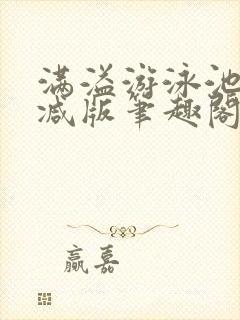 满溢游泳池
减版笔趣阁
赢嘉